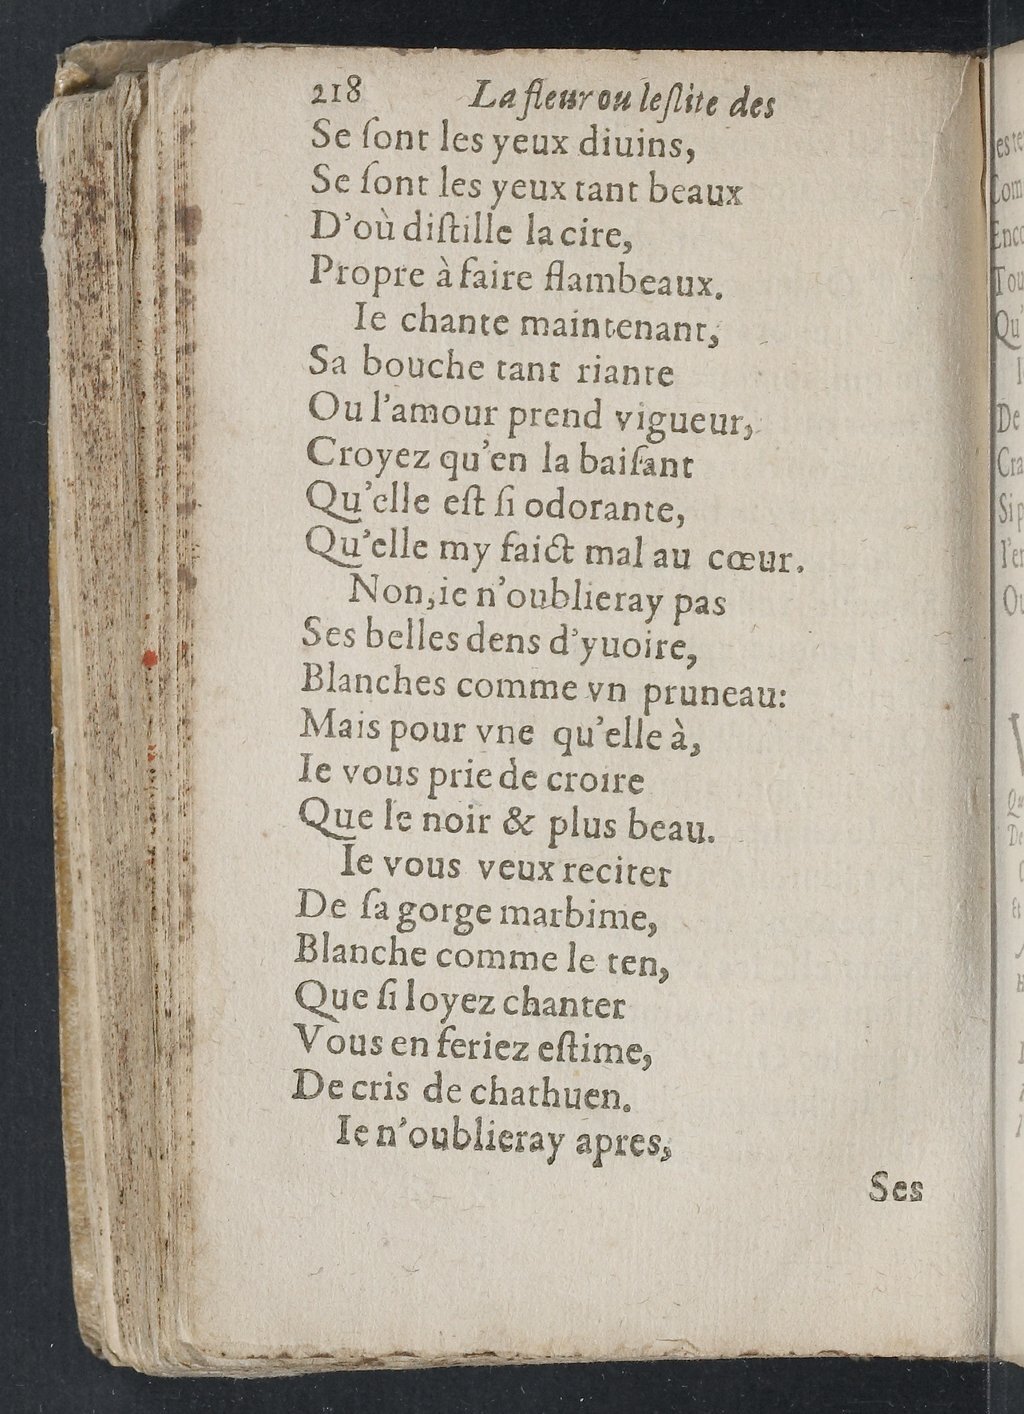 218 La fleur ou leſlite des
Se ſont les yeux diuins,
Se ſont les yeux tant beaux
D'où diſtille la cire,
Propre à faire flambeaux.
Ie chante maintenant,
Sa bouche tant riante
Ou l'amour prend vigueur,
Croyez qu'en la baiſant
Qu'elle eſt ſi odorante,
Qu'elle my faict mal au cœur.
Non, ie n'oublieray pas
Ses belles dens d'yuoire,
Blanches comme vn pruneau:
Mais pour vne qu'elle à,
Ie vous prie de croire
Que le noir & plus beau.
Ie vous veux reciter
De ſa gorge marbime,
Blanche comme le ten,
Que ſi loyez chanter
Vous en feriez eſtime,
De cris de chathuen.
Ie n'oublieray apres,
Ses